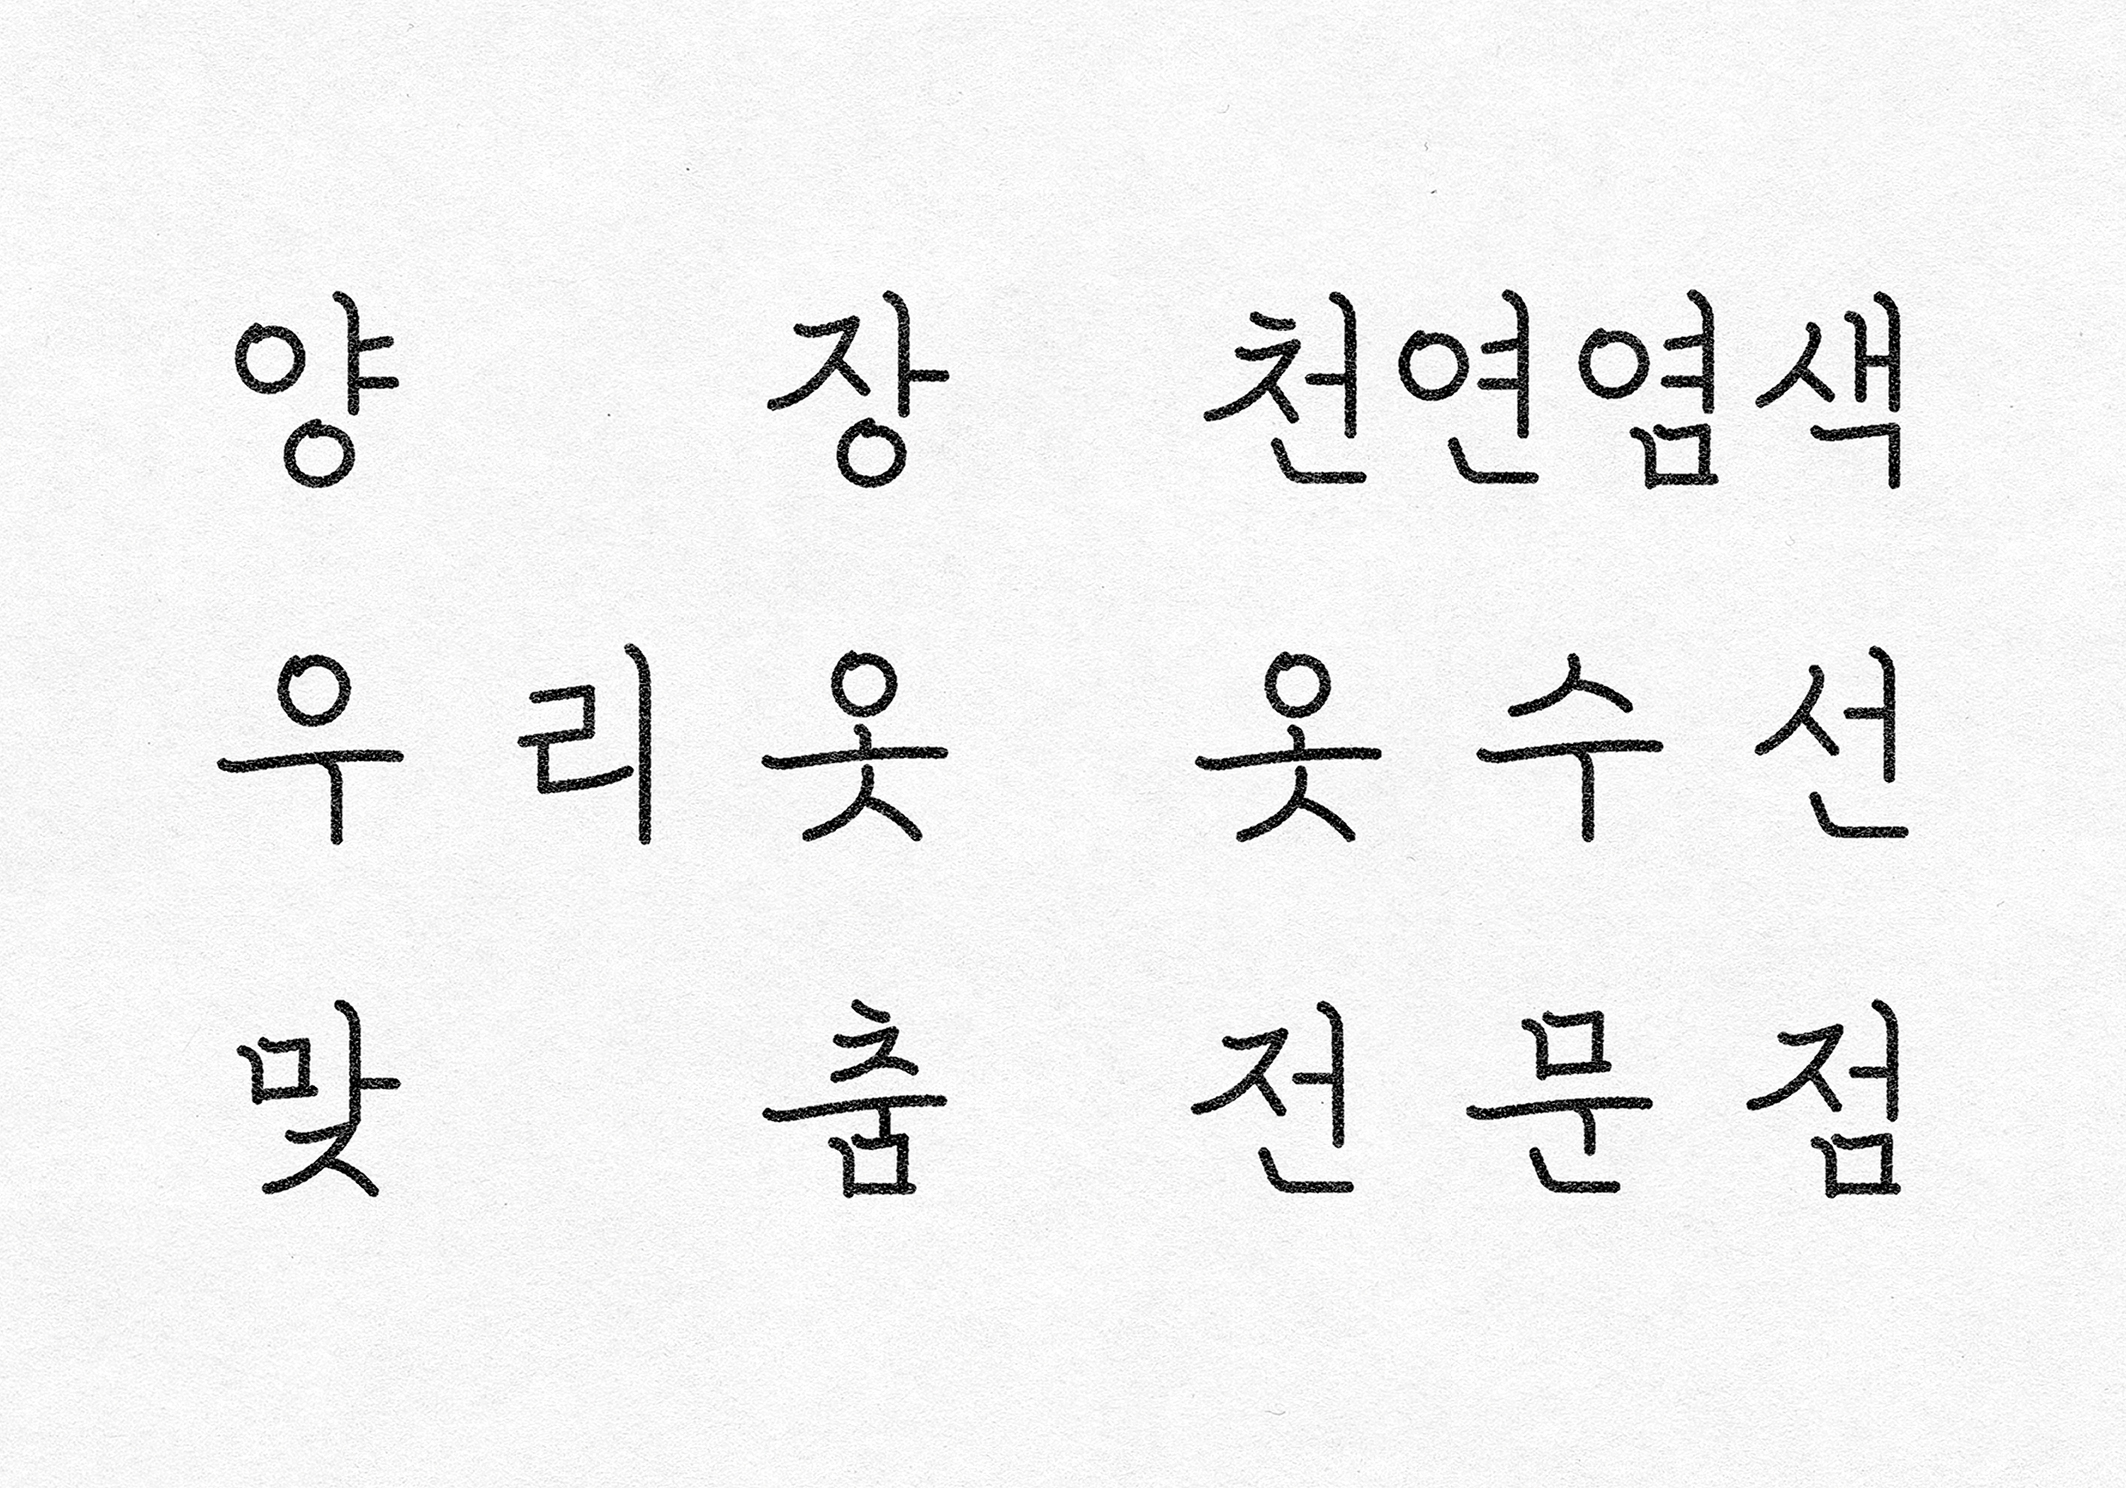 양 장 천연염색
우리옷 옷수선
맞 춤 전문점